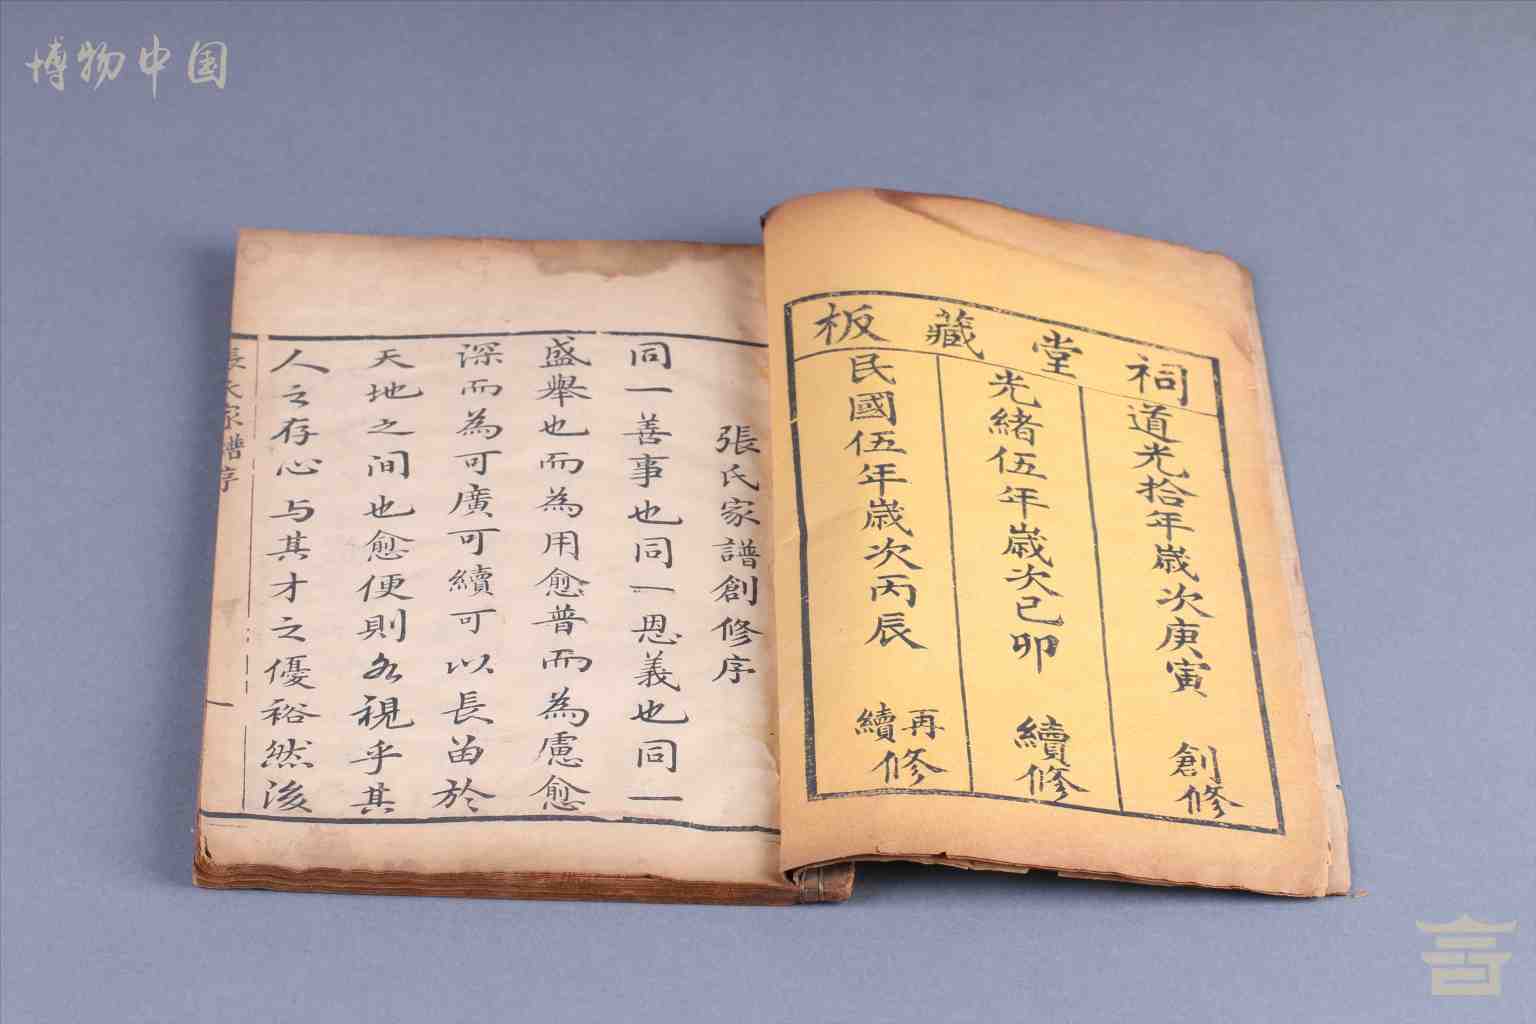 博物中国
祠堂藏板
道光拾年歲次庚寅 創修
光緒伍年歲次己卯 續修
民國伍年歲次丙辰 再續修
張氏家譜創修序
同一善事也同一恩義也同一
盛舉也而為用愈普而為慮愈
深而為可廣可續可以長留於
天地之间也愈便則各視乎其
人之存心与其才之優裕然後
張氏家譜序
一